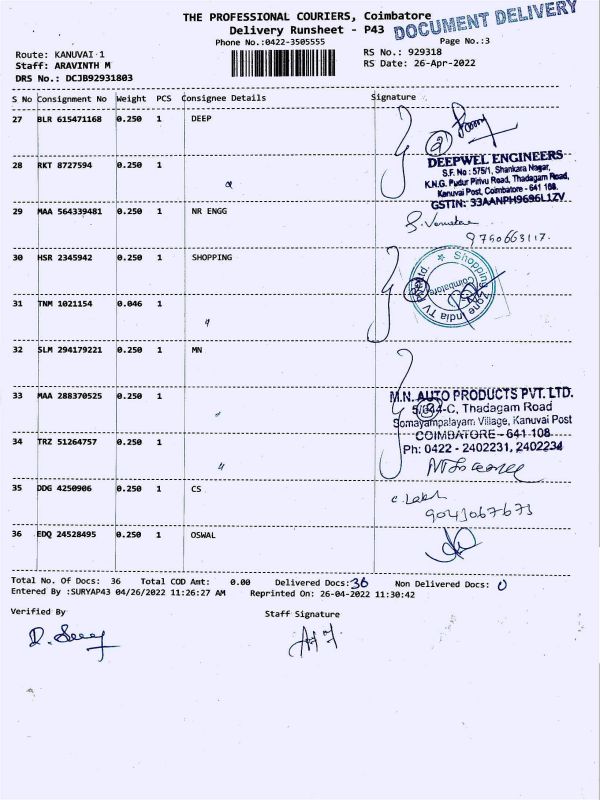 THE PROFESSIONAL COURIERS, Coimbatore
DOCUMENT DELIVERY
Delivery Runsheet - P43
Phone No.:0422-3505555
Page No.:3
Route: KANUVAI 1
RS No.: 929318
Staff: ARAVINTH M
RS Date: 26-Apr-2022
DRS No.: DCJB92931803
S No Consignment No Weight PCS Consignee Details Signature
27 BLR 615471168 0.250 1 DEEP
2
DEEPWEL ENGINEERS
S.F. No : 575/1, Shankara Nagar,
K.N.G. Pudur Pirivu Road, Thadagam Road,
Kanuvai Post, Coimbatore - 641 108.
GSTIN: 33AANPH9696L1ZV
28 RKT 8727594 0.250 1
29 MAA 564339481 0.250 1 NR ENGG
9750663117.
30 HSR 2345942 0.250 1 SHOPPING
Shopping Zone India TV Pvt. Ltd.
Coimbatore
31 TNM 1021154 0.046 1 "
32 SLM 294179221 0.250 1 MN
33 MAA 288370525 0.250 1 "
M.N. AUTO PRODUCTS PVT. LTD.
5/644-C, Thadagam Road
Somayampalayam Village, Kanuvai Post
COIMBATORE - 641 108
Ph: 0422 - 2402231, 2402234
34 TRZ 51264757 0.250 1 "
35 DDG 4250906 0.250 1 CS
9043067673
36 EDQ 24528495 0.250 1 OSWAL
Total No. Of Docs: 36 Total COD Amt: 0.00 Delivered Docs: 36 Non Delivered Docs: 0
Entered By :SURYAP43 04/26/2022 11:26:27 AM Reprinted On: 26-04-2022 11:30:42
Verified By
Staff Signature